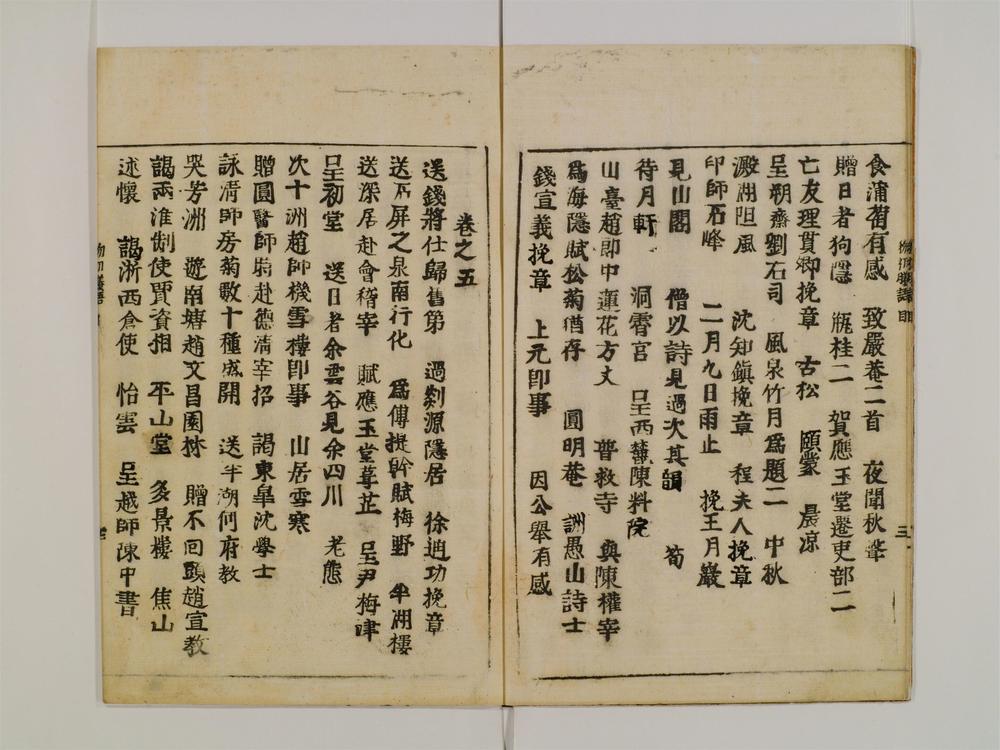 食蒲萄有感　致嚴菴二首　夜聞秋聲
贈日者狗隱　瓶桂二　賀應玉堂遷吏部二
亡友理貫卿挽章　古松　頤蒙　晨凉
呈朔齋劉石司　風泉竹月爲題二　中秋
澱湖阻風　沈知鎮挽章　程夫人挽章
印師石峰　二月九日雨止　挽王月巖
見山閣　僧以詩見過次其韻　筍
待月軒　洞霄宮　呈西麓陳料院
山臺趙郎中蓮花方丈　普救寺　與陳權宰
爲海隱賦松菊猶存　圓明菴　訓愚山詩士
錢宣義挽章　上元即事　因公舉有感
卷之五
送錢將仕歸舊第　過剡源隱居　徐逍功挽章
送石屏之泉南行化　爲傅提幹賦梅野　半湖樓
送深居赴會稽宰　賦應玉堂尊芷　呈尹梅津
呈初堂　送日者余雲谷見余四川　老態
次十洲趙帥機雪樓即事　山居雪寒
贈圓醫師時赴德清宰招　謁東皐沈學士
詠清師房菊數十種盛開　送半湖何府教
哭芳洲　遊南塘趙文昌園林　贈不回頭趙宣教
謁兩淮制使賈資相　平山堂　多景樓　焦山
述懷　謁浙西倉使　怡雲　呈越師陳中書